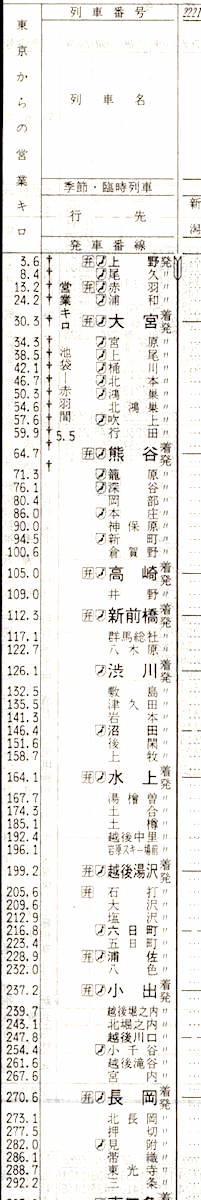 東京からの営業キロ
列車番号 222
列車名
季節・臨時列車
行先 新潟
発車番線
営業キロ 池袋―赤羽間 5.5
3.6 弁 上野 発
8.4 尾久 〃
13.2 弁 赤羽 〃
24.2 浦和 〃
30.3 弁 大宮 着発
34.3 宮原 〃
38.5 上尾 〃
42.1 桶川 〃
46.7 北本 〃
50.3 鴻巣 〃
54.6 北鴻巣 〃
57.6 吹上 〃
59.9 行田 〃
64.7 弁 熊谷 着発
71.3 籠原 〃
76.1 深谷 〃
80.4 岡部 〃
86.0 本庄 〃
90.0 神保原 〃
94.5 新町 〃
100.6 倉賀野 〃
105.0 弁 高崎 着発
109.0 井野 〃
112.3 弁 新前橋 着発
117.1 群馬総社 〃
122.7 八木原 〃
126.1 渋川 着発
132.5 敷島 〃
135.5 津久田 〃
141.3 岩本 〃
146.4 沼田 〃
151.6 後閑 〃
158.7 上牧 〃
164.1 弁 水上 着発
167.7 湯檜曽 〃
174.3 土合 〃
185.1 土樽 〃
192.4 越後中里 〃
196.1 岩原スキー場前 〃
199.2 弁 越後湯沢 着発
205.6 弁 石打 〃
209.6 大沢 〃
212.9 塩沢 〃
216.8 六日町 〃
223.4 五日町 〃
228.9 弁 浦佐 〃
232.0 八色 〃
237.2 弁 小出 着発
239.7 越後堀之内 〃
243.1 北堀之内 〃
247.8 越後川口 〃
254.4 小千谷 〃
261.6 越後滝谷 〃
267.6 宮内 〃
270.6 弁 長岡 着発
273.1 北長岡 〃
277.5 押切 〃
282.0 見附 〃
286.1 帯織 〃
288.7 東光寺 〃
292.2 三条 〃